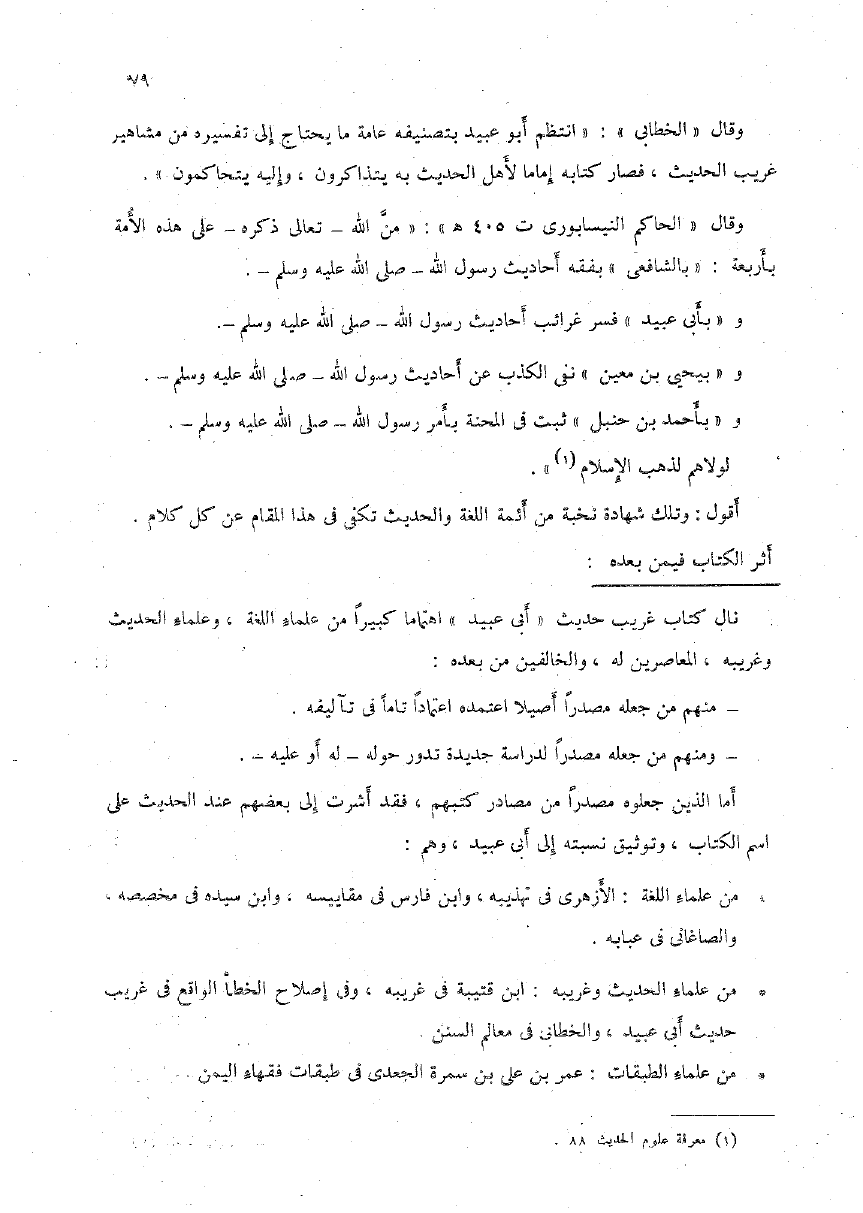 ٧٩
وقال « الخطابى » : « انتظم أبو عبيد بتصنيفه عامة ما يحتاج إلى تفسيره من مشاهير
غريب الحديث ، فصار كتابه إماما لأهل الحديث به يتذاكرون ، وإليه يتحاكمون » .
وقال « الحاكم النيسابورى ت ٤٠٥ ه » : « منَّ الله – تعالى ذكره – على هذه الأُمة
بأربعة : « بالشافعى » بفقه أحاديث رسول الله – صلى الله عليه وسلم – .
و « بأبى عبيد » فسر غرائب أحاديث رسول الله – صلى الله عليه وسلم –.
و « بيحيى بن معين » نفى الكذب عن أحاديث رسول الله – صلى الله عليه وسلم – .
و « بأحمد بن حنبل » ثبت فى المحنة بأمر رسول الله – صلى الله عليه وسلم – .
لولاهم لذهب الإسلام (١) » .
أقول : وتلك شهادة نخبة من أئمة اللغة والحديث تكفى فى هذا المقام عن كل كلام .
أثر الكتاب فيمن بعده :
نال كتاب غريب حديث « أبى عبيد » اهتماما كبيراً من علماء اللغة ، وعلماء الحديث
وغريبه ، المعاصرين له ، والخالفين من بعده :
– منهم من جعله مصدراً أصيلا اعتمده اعتماداً تاماً فى تآليفه .
– ومنهم من جعله مصدراً لدراسة جديدة تدور حوله – له أو عليه – .
أما الذين جعلوه مصدراً من مصادر كتبهم ، فقد أشرت إلى بعضهم عند الحديث على
اسم الكتاب ، وتوثيق نسبته إلى أبى عبيد ، وهم :
* من علماء اللغة : الأزهرى فى تهذيبه ، وابن فارس فى مقاييسه ، وابن سيده فى مخصصه ،
والصاغانى فى عبابه .
* من علماء الحديث وغريبه : ابن قتيبة فى غريبه ، وفى إصلاح الخطأ الواقع فى غريب
حديث أبى عبيد ، والخطابى فى معالم السنن .
* من علماء الطبقات : عمر بن على بن سمرة الجعدى فى طبقات فقهاء اليمن .
(١) معرفة علوم الحديث ٨٨ .